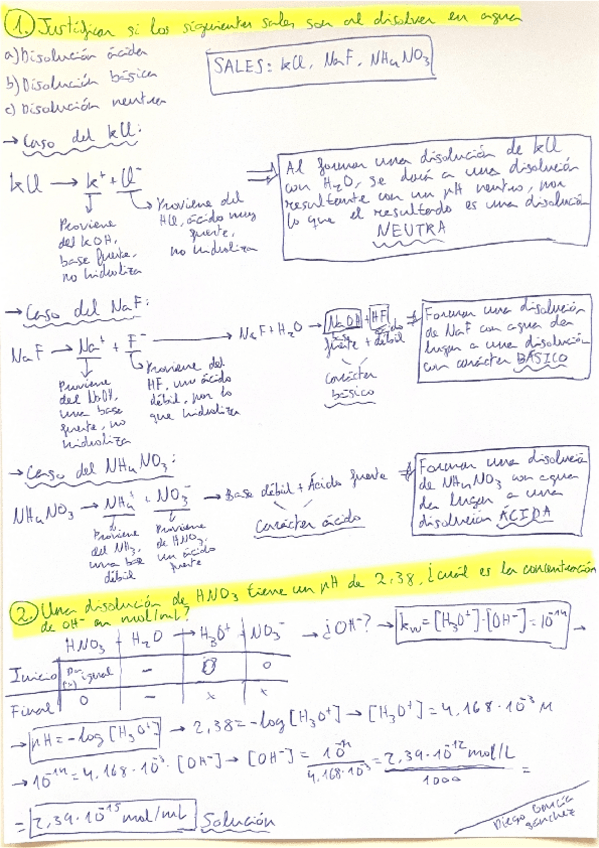 1. Justificar si las siguientes sales son al disolver en agua
a) Disolución ácida
b) Disolución básica
c) Disolución neutra
SALES: KCl, NaF, NH4NO3
→ Caso del KCl:
KCl → K⁺ + Cl⁻
Proviene
del KOH,
base fuerte,
no hidroliza
Proviene del
HCl, ácido muy
fuerte,
no hidroliza
⇒ Al formar una disolución de KCl
con H2O, se dará a una disolución
resultante con un pH neutro, por
lo que el resultado es una disolución
NEUTRA
→ Caso del NaF:
NaF → Na⁺ + F⁻ → NaF + H2O → NaOH + HF
Proviene
del NaOH,
una base
fuerte, no
hidroliza
Proviene del
HF, un ácido
débil, por lo
que hidroliza
fuerte + débil
Carácter
básico
⇒ Formar una disolución
de NaF con agua da
lugar a una disolución
con carácter BÁSICO
→ Caso del NH4NO3:
NH4NO3 → NH4⁺ + NO3⁻ → Base débil + Ácido fuerte
Proviene
del NH3,
una base
débil
Proviene
de HNO3,
un ácido
fuerte
Carácter ácido
⇒ Formar una disolución
de NH4NO3 con agua
da lugar a una
disolución ÁCIDA
2. Una disolución de HNO3 tiene un pH de 2,38, ¿cuál es la concentración
de OH⁻ en mol/mL?
HNO3 + H2O → H3O⁺ + NO3⁻ → ¿OH⁻? → Kw = [H3O⁺]·[OH⁻] = 10⁻¹⁴ →
Inicio igual – 0 0
Final 0 – x x
→ pH = -log [H3O⁺] → 2,38 = -log [H3O⁺] → [H3O⁺] = 4,168·10⁻³ M
→ 10⁻¹⁴ = 4,168·10⁻³·[OH⁻] → [OH⁻] = 10⁻¹⁴ / 4,168·10⁻³ = 2,39·10⁻¹² mol/L / 1000 =
= 2,39·10⁻¹⁵ mol/mL Solución
Diego García
Sánchez